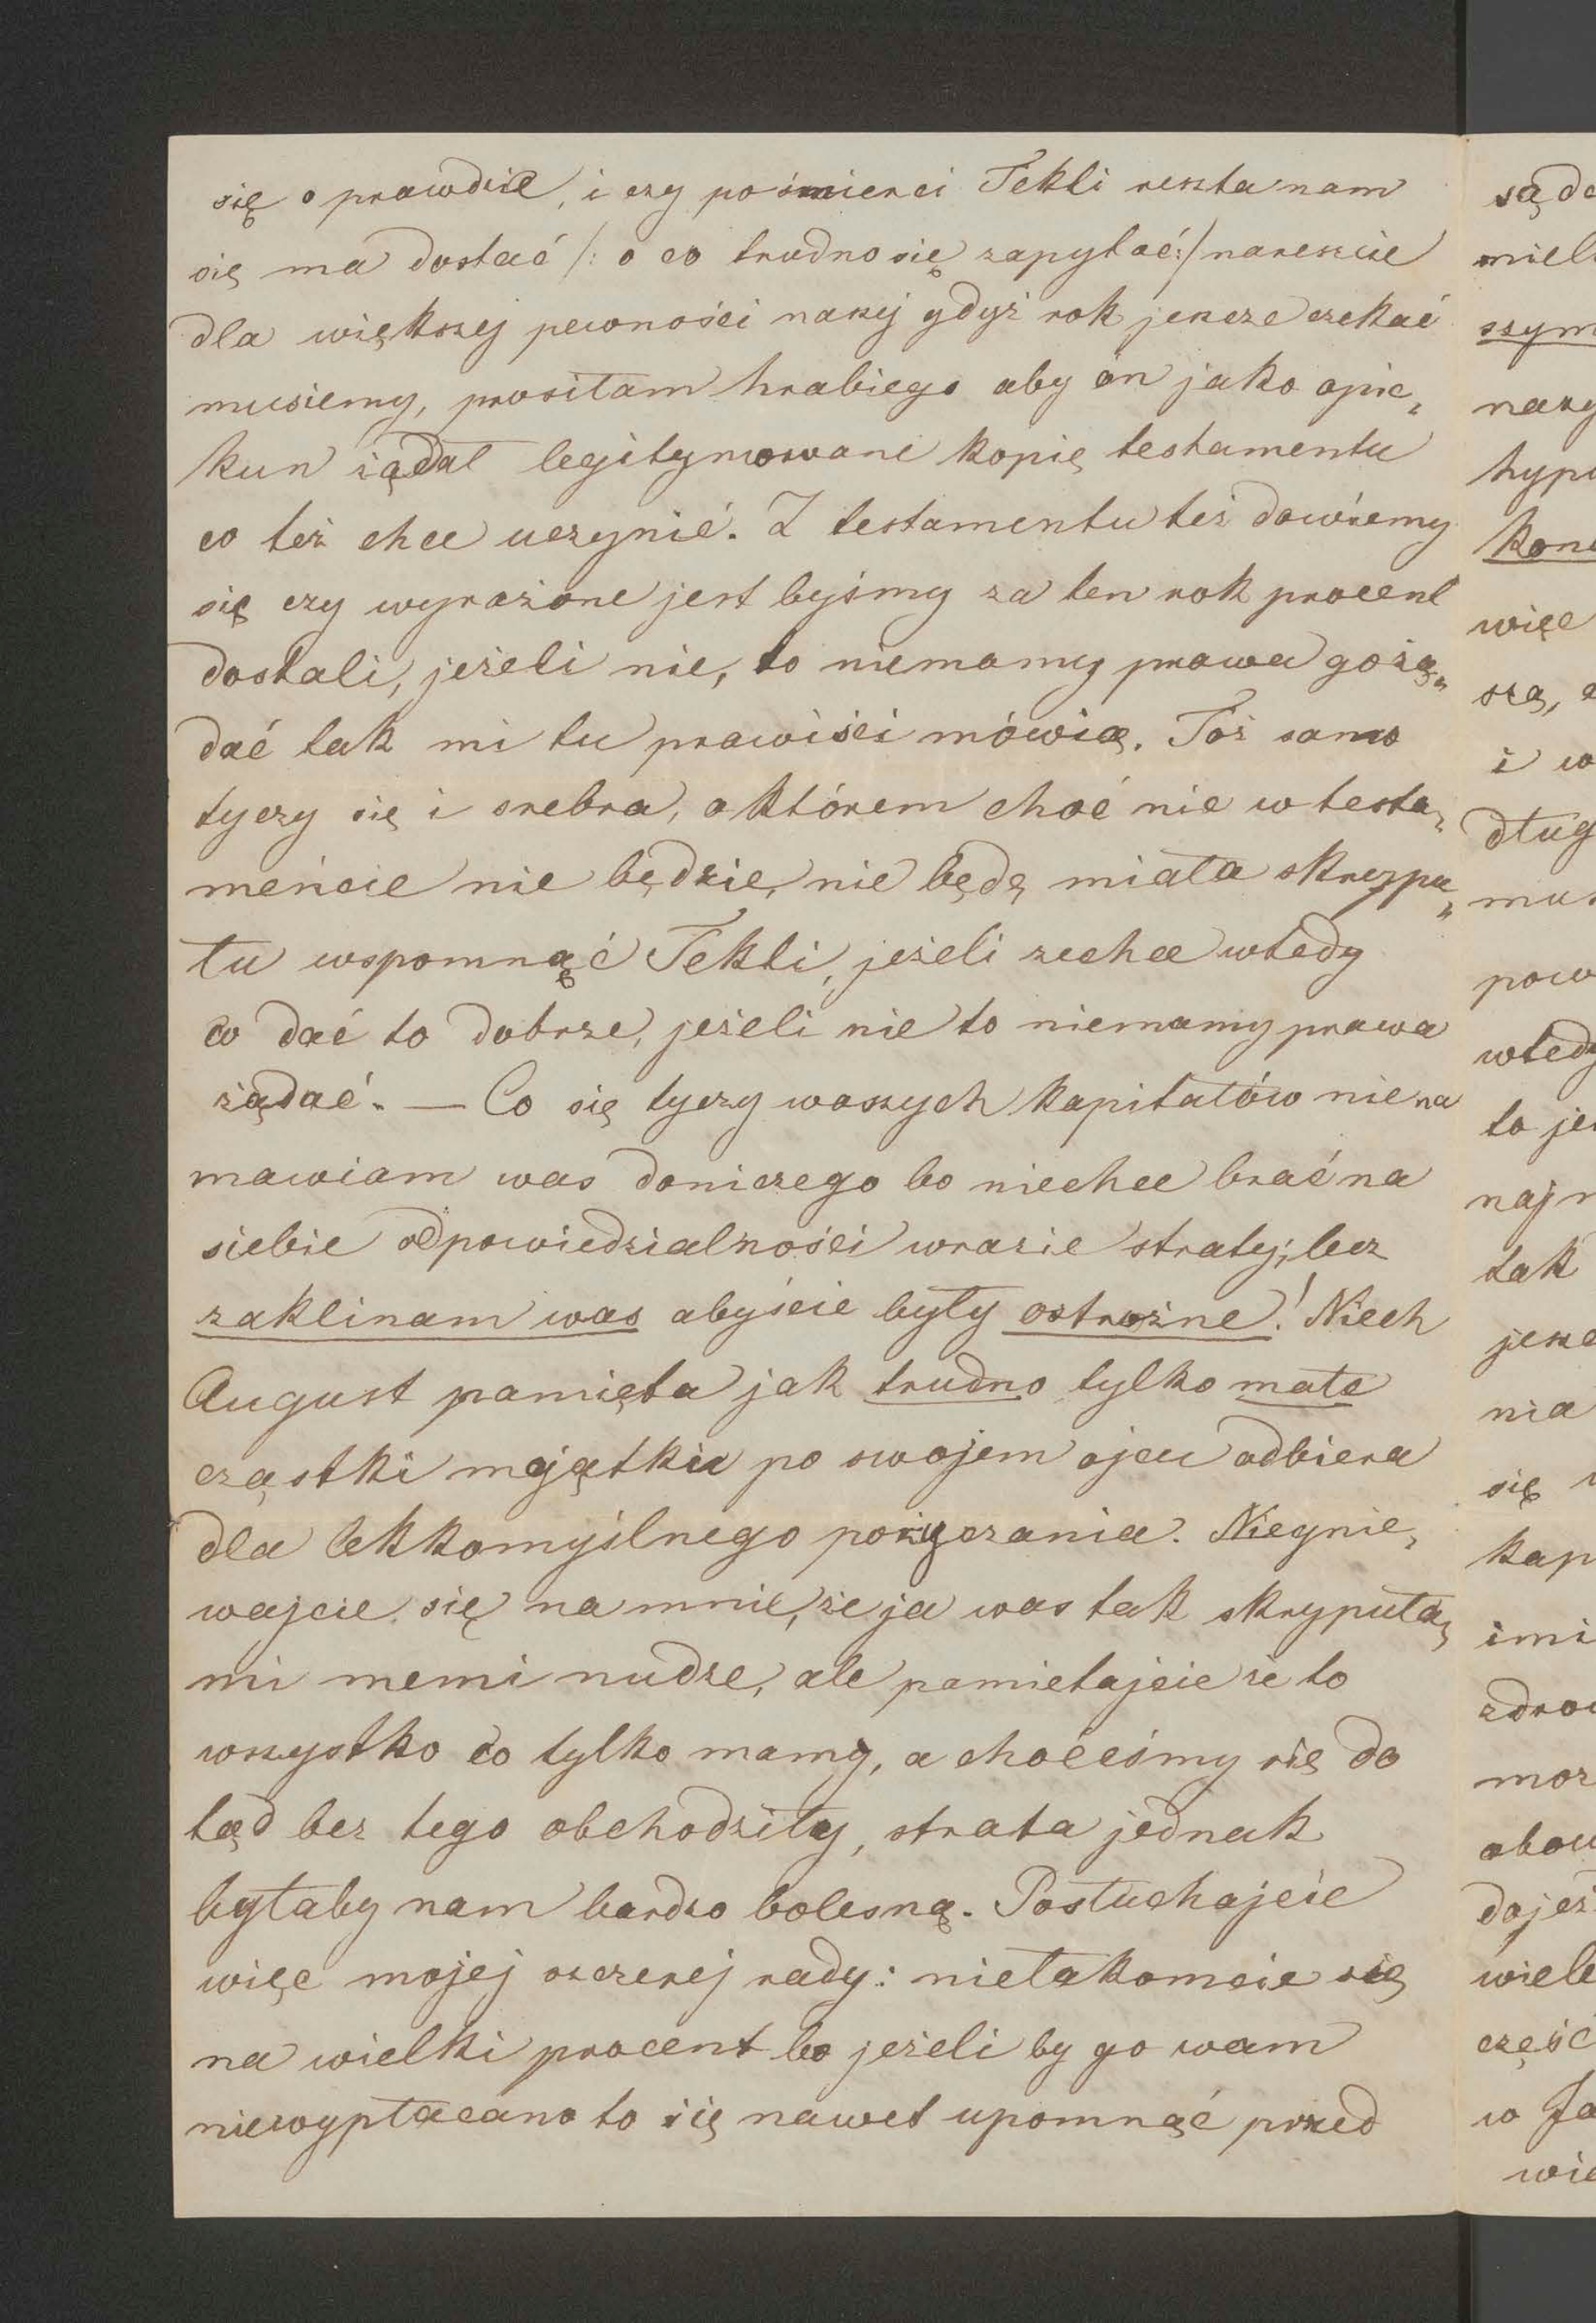 się o prawdzie, i czy pośmierci Tekli reszta nam
się ma dostać /: o co trudno się zapytać :/ nareszcie
dla większej pewności naszej gdyż rok jeszcze czekać
musiemy, prosiłam hrabiego aby on jako opie„
kun żądał legitymowane kopię testamentu
co też chce uczynić. Z testamentu też dowiemy
się czy wyrażone jest byśmy za ten rok procent
dostali, jeżeli nie, to niemamy prawa gożą„
dać tak mi tu prawiści mówią. Toż samo
tyczy się i srebra, o którem choć nic w testa„
mencie nie będzie, nie będę miała skrypu„
łu wspomnąć Tekli, jeżeli zechce wtedy
co dać to dobrze, jeżeli nie to niemamy prawa
żądać. — Co się tyczy waszych kapitałów nie na
mawiam was doniczego bo niechce brać na
siebie odpowiedzialności wrazie straty; lecz
zaklinam was abyście były ostrożne! Niech
August pamięta jak trudno tylko małe
cząstki majątku po swojem ojcu odbiera
dla lekkomyślnego pożyczania. Niegnie„
wajcie się na mnie, że ja was tak skrypuła„
mi memi nudze, ale pamietajcie że to
wszystko co tylko mamy, a choćeśmy się do
tąd bez tego obchodziły, strata jednak
byłaby nam bardzo bolesną. Posłuchajcie
więc mojej szczerej rady: niełakomcie się
na wielki procent bo jeżeli by go wam
niewypłacano to się nawet upomnąć przed
sąde
miel
szym
nasz
hypo
kon
więc
szą,
i w
dług
mus
pow
wtedy
to je
naj
tak
jesz
nia
się
kap
imi
zdrow
moż
obow
dojeż
wiele
część
w Ja
wie